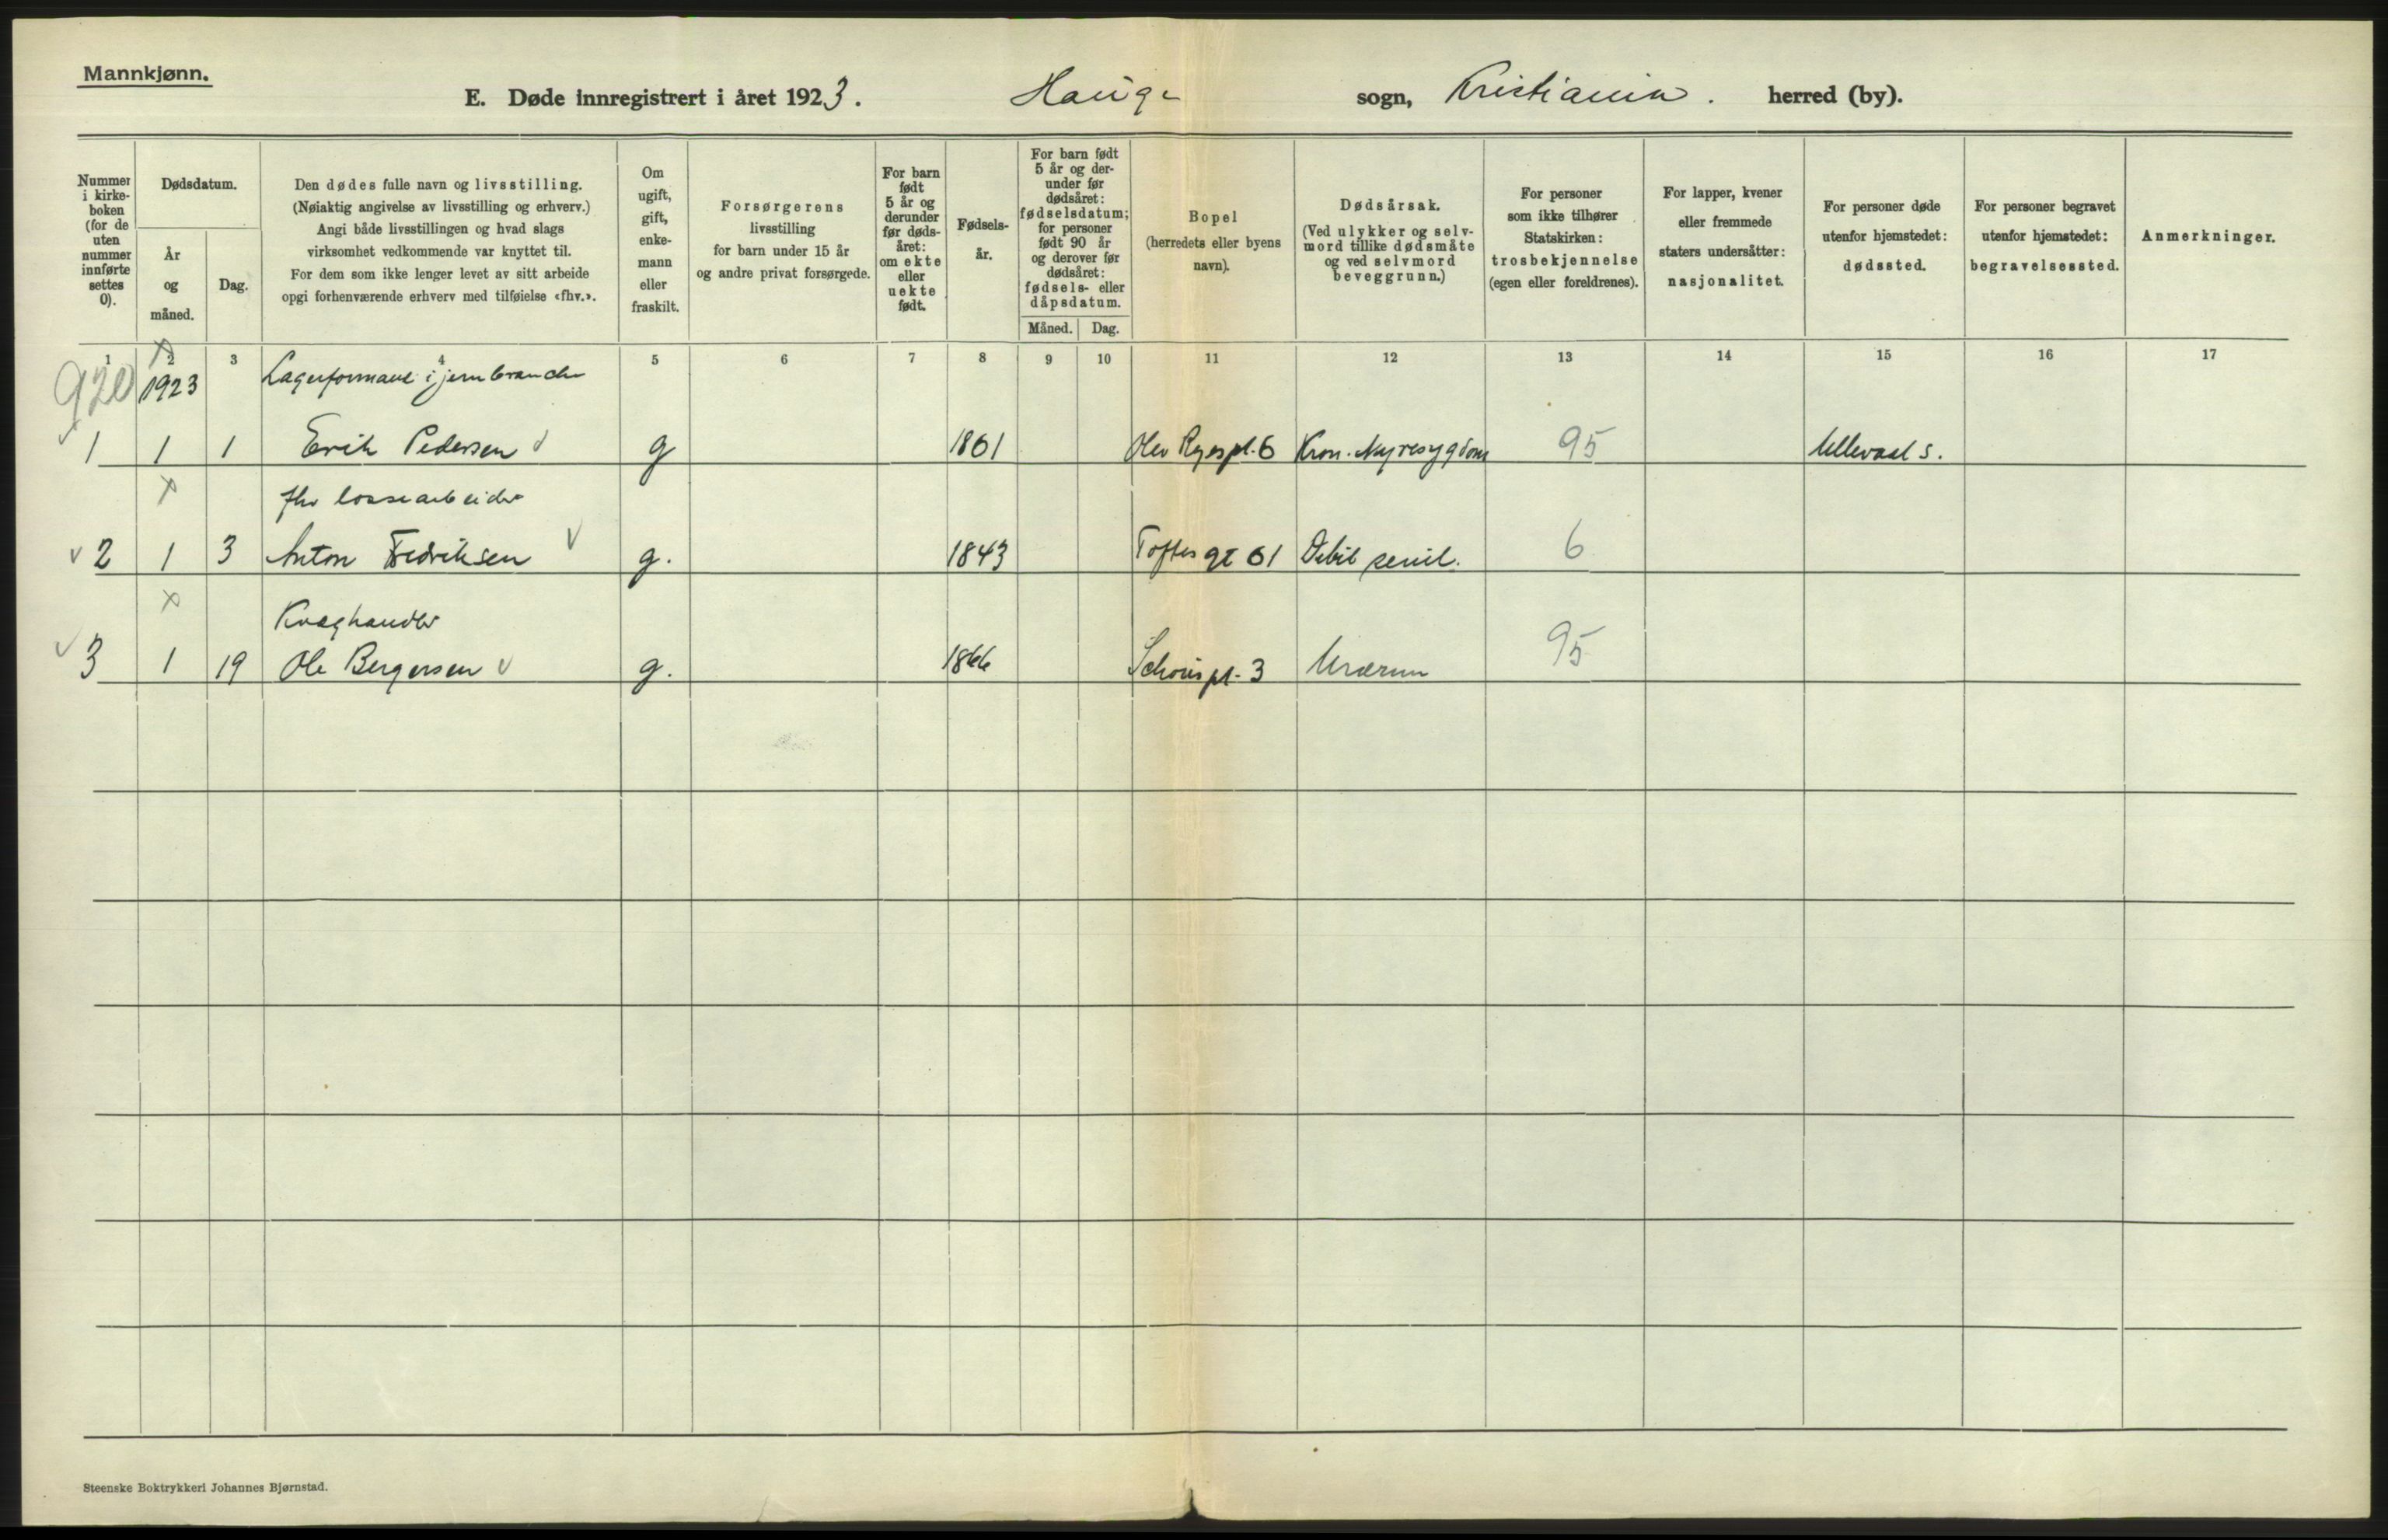 Mannkjønn.
E. Døde innregistrert i året 1923. Hauge sogn, Kristiania. herred (by).
Nummer i kirke-boken (for de uten nummer innførte settes 0).
Dødsdatum.
År og måned.
Dag.
Den dødes fulle navn og livsstilling.
(Nøiaktig angivelse av livsstilling og erhverv.)
Angi både livsstillingen og hvad slags
virksomhet vedkommende var knyttet til.
For dem som ikke lenger levet av sitt arbeide
opgi forhenværende erhverv med tilføielse «fhv.».
Om ugift, gift, enke-mann eller fraskilt.
Forsørgerens
livsstilling
for barn under 15 år
og andre privat forsørgede.
For barn født 5 år og derunder før døds-året: om ekte eller uekte født.
Fødsels-år.
For barn født 5 år og der-under før dødsåret: fødselsdatum; for personer født 90 år og derover før dødsåret: fødsels- eller dåpsdatum.
Måned. Dag.
Bopel
(herredets eller byens
navn).
Dødsårsak.
(Ved ulykker og selv-
mord tillike dødsmåte
og ved selvmord
beveggrunn.)
For personer
som ikke tilhører
Statskirken:
trosbekjennelse
(egen eller foreldrenes).
For lapper, kvener
eller fremmede
staters undersåtter:
nasjonalitet.
For personer døde
utenfor hjemstedet:
dødssted.
For personer begravet
utenfor hjemstedet:
begravelsessted.
Anmerkninger.
1 2 3 4 5 6 7 8 9 10 11 12 13 14 15 16 17
920 1923 Lagerformand i jernbranche
1 1 1 Erik Pedersen g 1861 Olev Ryes pl. 6 Kron. Nyresygdom 95 Ullevaal s.
x fhv lossearbeider
2 1 3 Anton Fredriksen g. 1843 Toftes gt 61 Debil senil. 6
x Kvæghandler
3 1 19 Ole Bergersen g. 1866 Schous pl. 3 Uræmi 95
Steenske Boktrykkeri Johannes Bjørnstad.